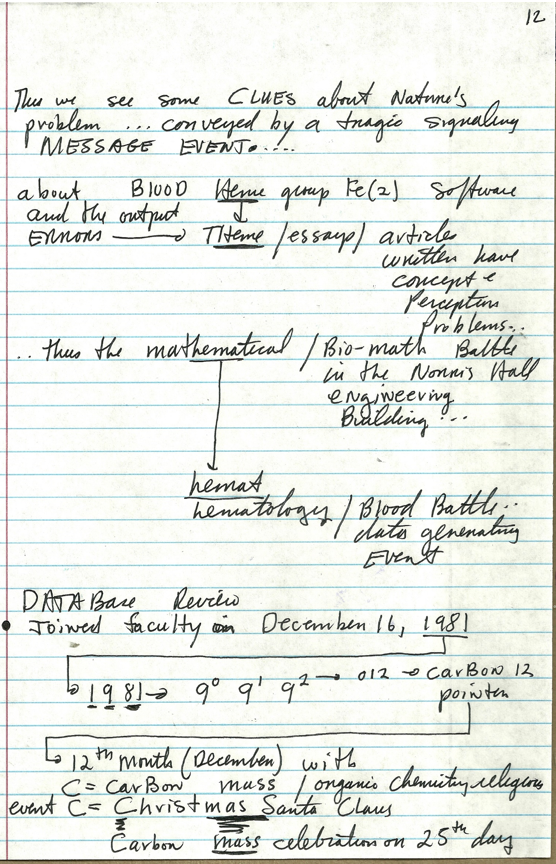 12
Thus we see some CLUES about Nature's
problem ... conveyed by a tragic signaling
MESSAGE EVENT.....
about BLOOD Heme group Fe(2) software
and the output
ERRORS → THeme / essays / articles
written have
concept &
Perception
Problems...
.. thus the mathematical / Bio-math Battle
in the Norris Hall
engineering
Building ...
hemat
hematology / Blood Battle..
data generating
EVENT
DATABase Review
• Joined faculty in December 16, 1981
1981 → 9⁰ 9¹ 9² → 012 → carBon 12
pointer
12th Month (December) with
C = carBon mass / organic chemistry religious
event C = Christmas Santa Claus
Carbon mass celebration on 25th day